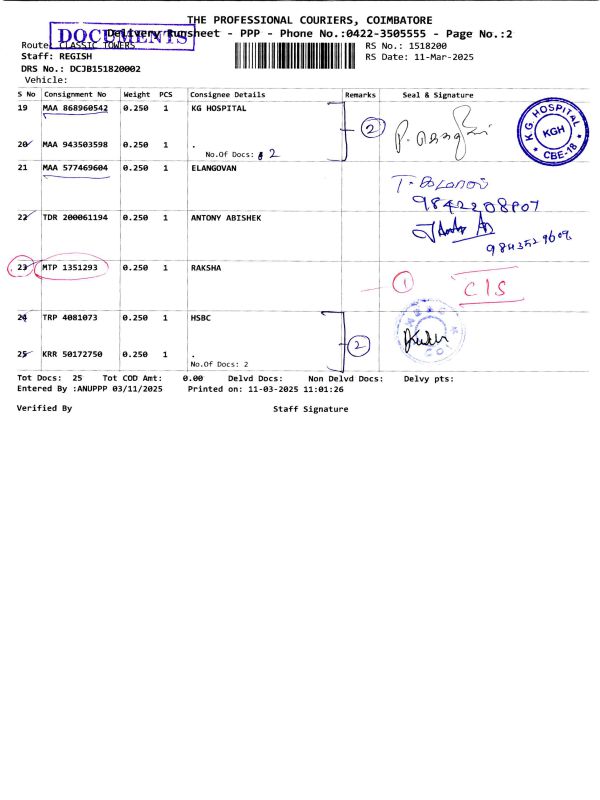 THE PROFESSIONAL COURIERS, COIMBATORE
DOCUMENTS
Delivery Runsheet - PPP - Phone No.:0422-3505555 - Page No.:2
Route: CLASSIC TOWERS
RS No.: 1518200
Staff: REGISH
RS Date: 11-Mar-2025
DRS No.: DCJB151820002
Vehicle:
S No Consignment No Weight PCS Consignee Details Remarks Seal & Signature
19 MAA 868960542 0.250 1 KG HOSPITAL
2
KG HOSPITAL
KGH
* CBE-18 *
20 MAA 943503598 0.250 1 .
No.Of Docs: 2
21 MAA 577469604 0.250 1 ELANGOVAN
9842208807
22 TDR 200061194 0.250 1 ANTONY ABISHEK
9843529609
23 MTP 1351293 0.250 1 RAKSHA
1
C/S
24 TRP 4081073 0.250 1 HSBC
2
25 KRR 50172750 0.250 1 .
No.Of Docs: 2
Tot Docs: 25 Tot COD Amt: 0.00 Delvd Docs: Non Delvd Docs: Delvy pts:
Entered By :ANUPPP 03/11/2025 Printed on: 11-03-2025 11:01:26
Verified By Staff Signature